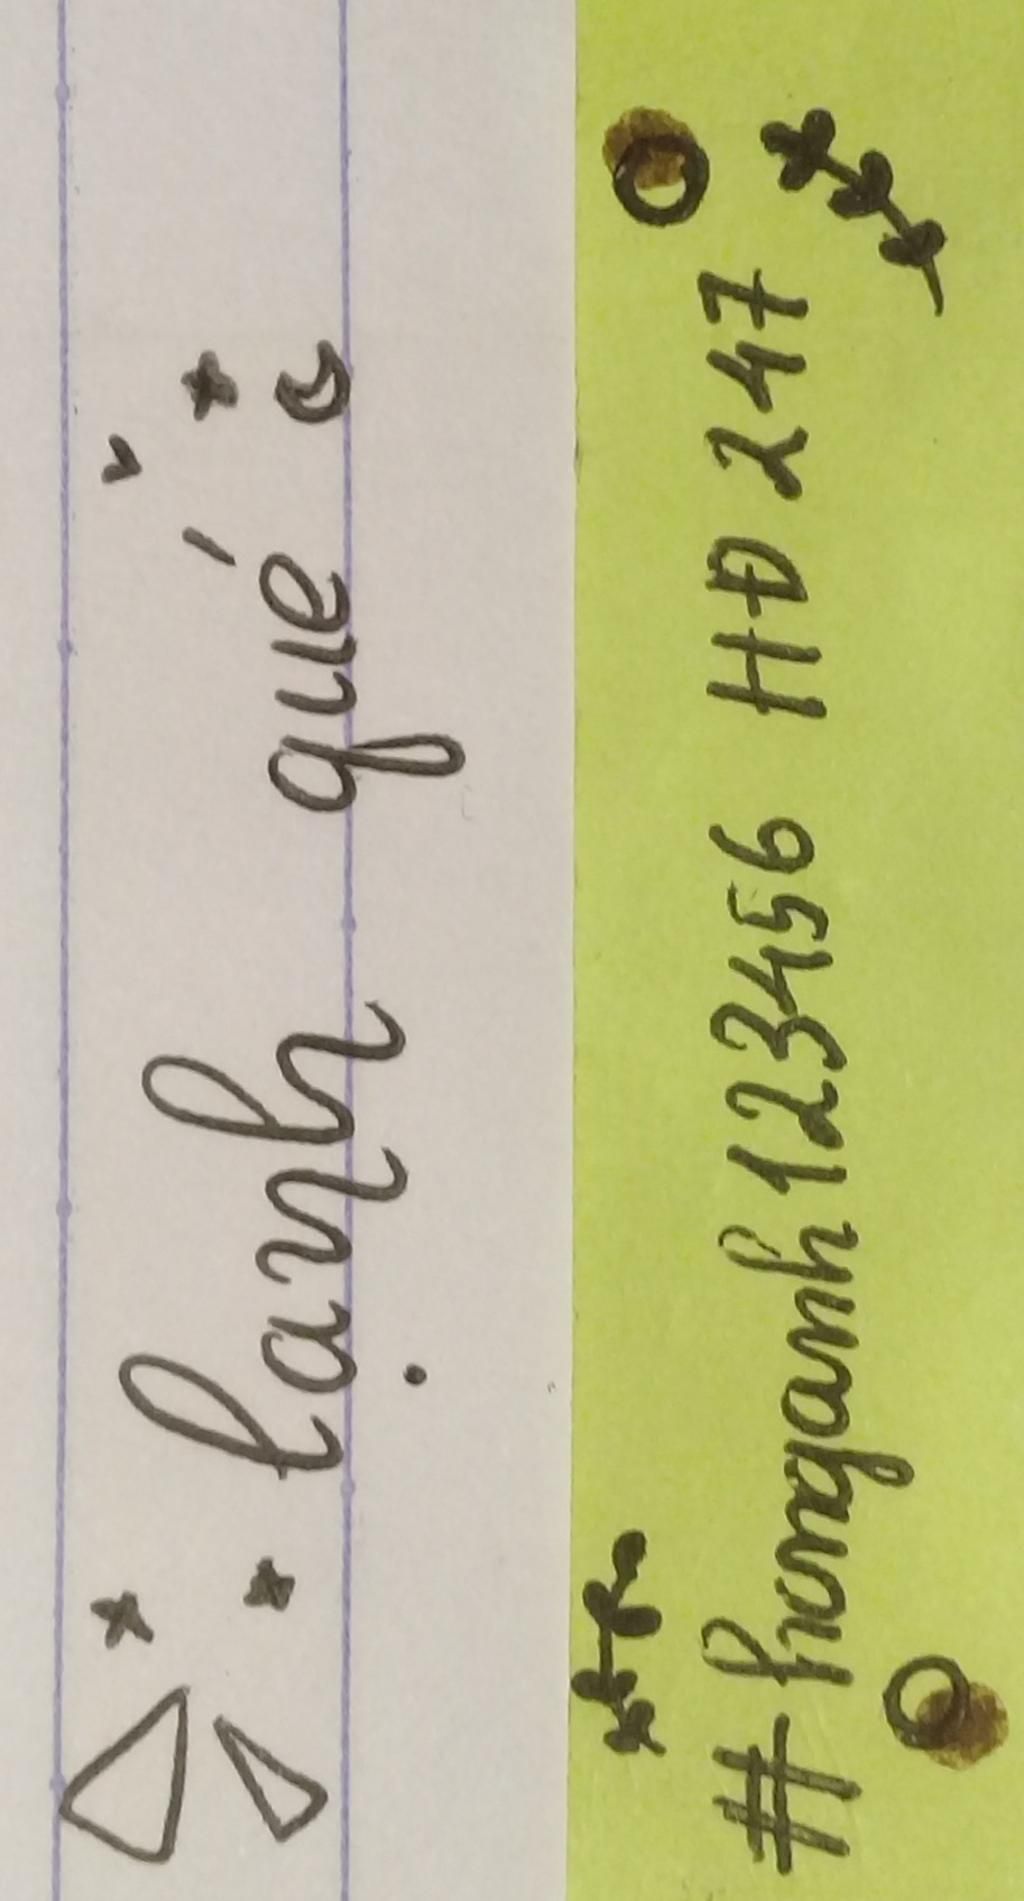 lạnh qué
#honganh123456 HĐ 247